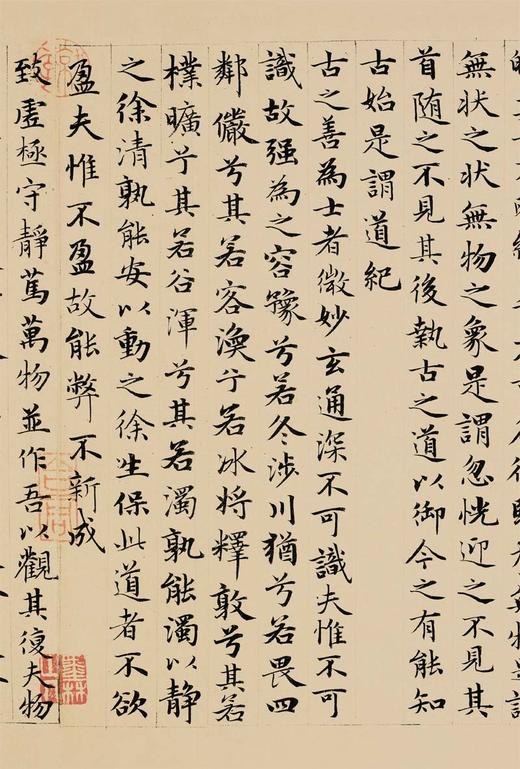 無状之状無物之象是謂忽恍迎之不見其
首随之不見其後執古之道以御今之有能知
古始是謂道紀
古之善為士者微妙玄通深不可識夫惟不可
識故强為之容豫兮若冬涉川猶兮若畏四
鄰儼兮其若容渙兮若冰将釋敦兮其若
樸曠兮其若谷渾兮其若濁孰能濁以静
之徐清孰能安以動之徐生保此道者不欲
盈夫惟不盈故能弊不新成
致虚極守静篤萬物並作吾以觀其復夫物